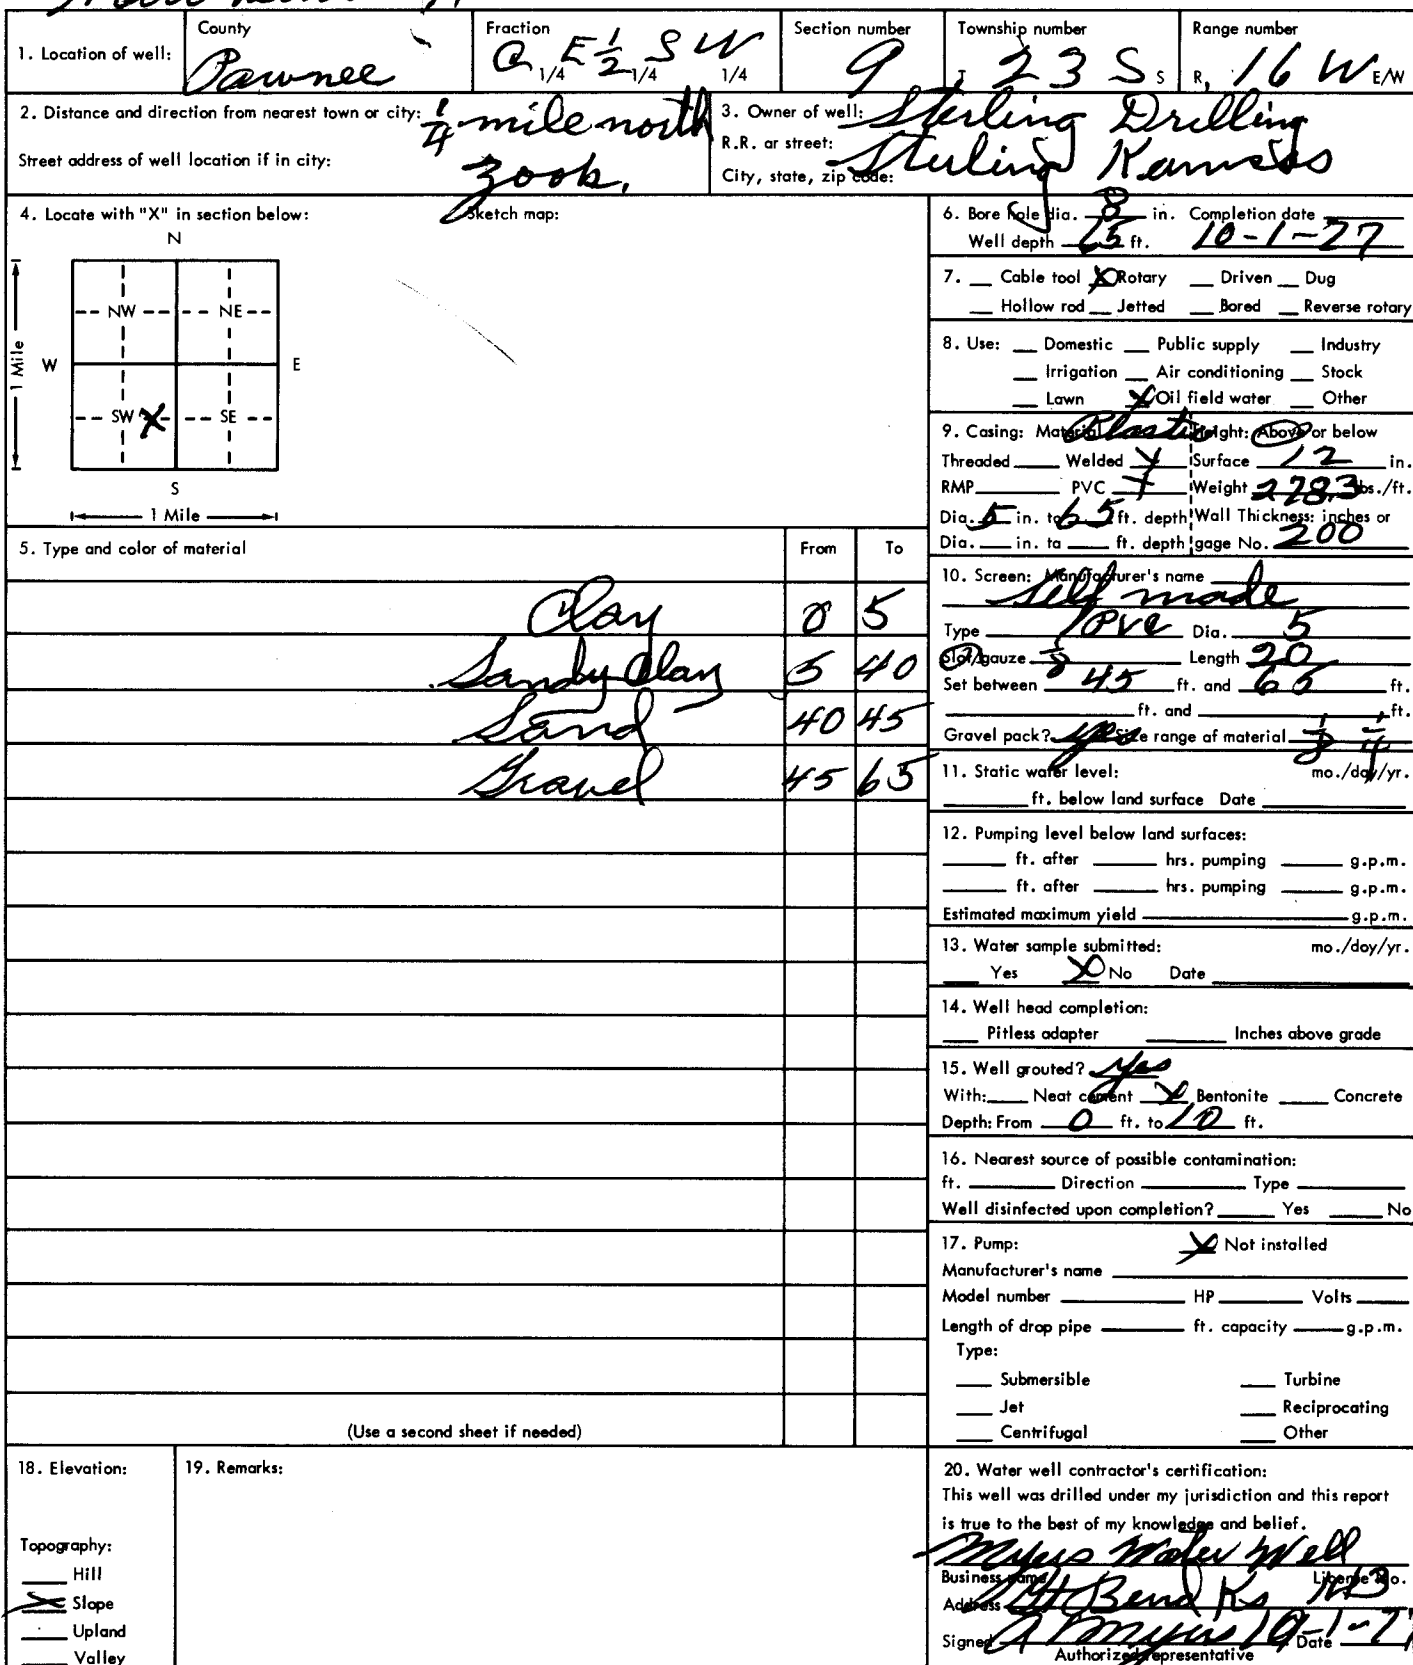 County Fraction Section number Township number Range number
1. Location of well: Pawnee C 1/4 E 1/2 1/4 SW 1/4 9 T 23 S S R, 16 W E/W
2. Distance and direction from nearest town or city: 1/4 mile north
Street address of well location if in city: Zook.
3. Owner of well: Sterling Drilling
R.R. or street:
City, state, zip code: Sterling Kansas
4. Locate with "X" in section below: Sketch map:
N
NW NE
W E
1 Mile
SW X SE
S
1 Mile
5. Type and color of material From To
Clay 0 5
Sandy Clay 5 40
Sand 40 45
Gravel 45 65
(Use a second sheet if needed)
6. Bore hole dia. 8 in. Completion date
Well depth 65 ft. 10-1-77
7. Cable tool X Rotary Driven Dug
Hollow rod Jetted Bored Reverse rotary
8. Use: Domestic Public supply Industry
Irrigation Air conditioning Stock
Lawn X Oil field water Other
9. Casing: Material Plastic Height: Above or below
Threaded Welded X Surface 12 in.
RMP PVC X Weight 2783 lbs./ft.
Dia. 5 in. to 65 ft. depth Wall Thickness: inches or
Dia. in. to ft. depth gage No. 200
10. Screen: Manufacturer's name
Self made
Type PVC Dia. 5
Slot/gauze 1/8 Length 20
Set between 45 ft. and 65 ft.
ft. and ft.
Gravel pack? yes Size range of material 1/8 1/4
11. Static water level: mo./day/yr.
ft. below land surface Date
12. Pumping level below land surfaces:
ft. after hrs. pumping g.p.m.
ft. after hrs. pumping g.p.m.
Estimated maximum yield g.p.m.
13. Water sample submitted: mo./day/yr.
Yes X No Date
14. Well head completion:
Pitless adapter Inches above grade
15. Well grouted? yes
With: Neat cement X Bentonite Concrete
Depth: From 0 ft. to 10 ft.
16. Nearest source of possible contamination:
ft. Direction Type
Well disinfected upon completion? Yes No
17. Pump: X Not installed
Manufacturer's name
Model number HP Volts
Length of drop pipe ft. capacity g.p.m.
Type:
Submersible Turbine
Jet Reciprocating
Centrifugal Other
18. Elevation:
Topography:
Hill
X Slope
Upland
Valley
19. Remarks:
20. Water well contractor's certification:
This well was drilled under my jurisdiction and this report
is true to the best of my knowledge and belief.
Myers Water Well
Business name License No.
Address Bend Ks
Signed Myers 10-1-77 Date
Authorized representative